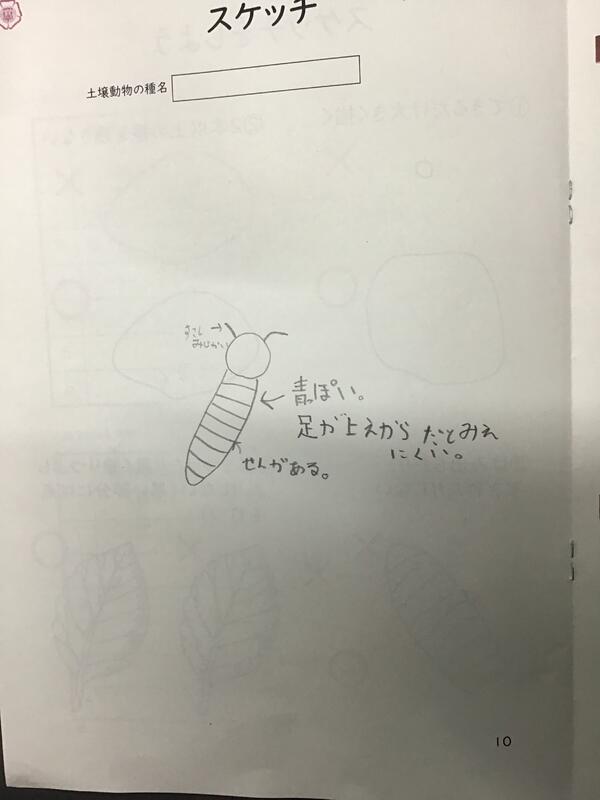 スケッチ
土壌動物の種名
すこし
みじかい
青っぽい。
足が上えから だとみえ
にくい。
せんがある。
10